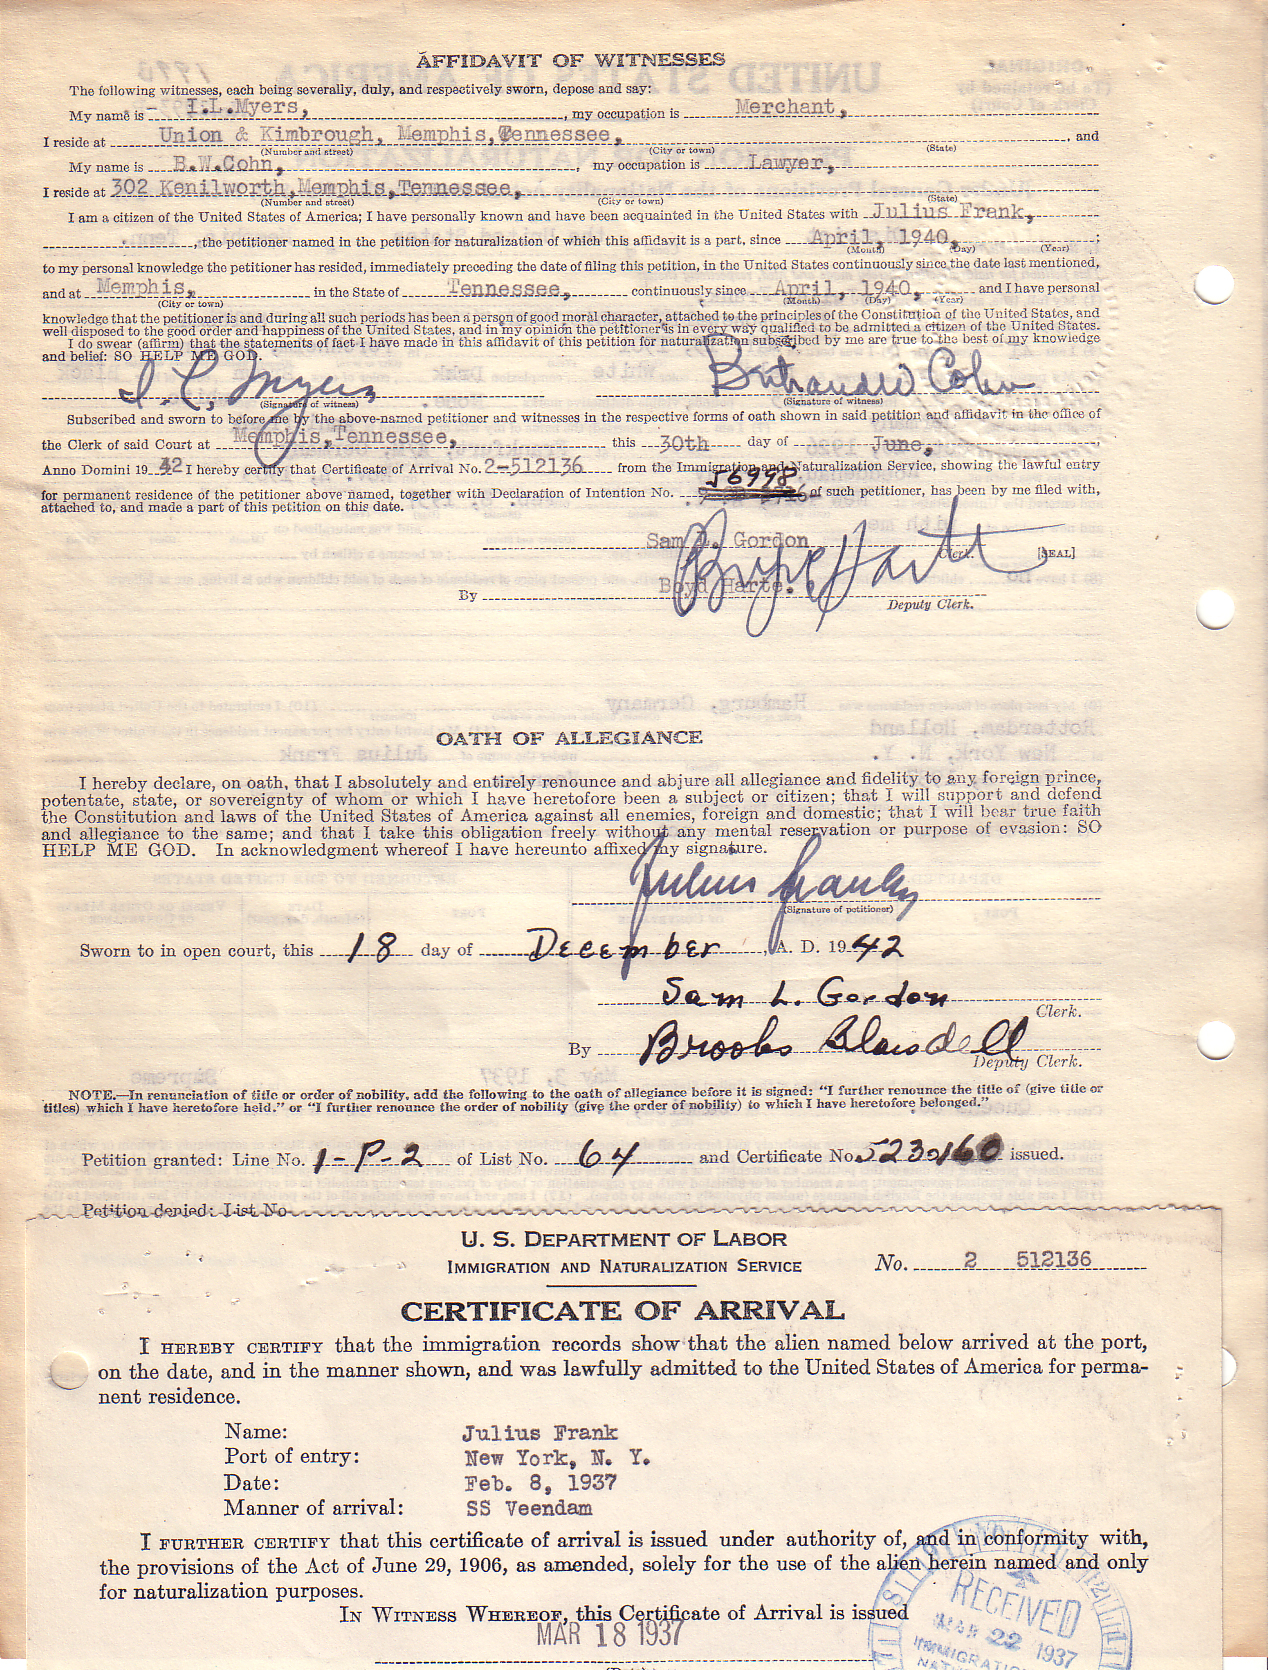 AFFIDAVIT OF WITNESSES
The following witnesses, each being severally, duly, and respectively sworn, depose and say:
My name is I.L.Myers, my occupation is Merchant,
I reside at Union & Kimbrough, Memphis, Tennessee, and
(Number and street) (City or town) (State)
My name is B.W.Cohn, my occupation is Lawyer,
I reside at 302 Kenilworth,Memphis,Tennessee,
(Number and street) (City or town) (State)
I am a citizen of the United States of America; I have personally known and have been acquainted in the United States with Julius Frank,
, the petitioner named in the petition for naturalization of which this affidavit is a part, since April, 1940, ;
(Month) (Day) (Year)
to my personal knowledge the petitioner has resided, immediately preceding the date of filing this petition, in the United States continuously since the date last mentioned,
and at Memphis, in the State of Tennessee, continuously since April, 1940, and I have personal
(City or town) (Month) (Day) (Year)
knowledge that the petitioner is and during all such periods has been a person of good moral character, attached to the principles of the Constitution of the United States, and
well disposed to the good order and happiness of the United States, and in my opinion the petitioner is in every way qualified to be admitted a citizen of the United States.
I do swear (affirm) that the statements of fact I have made in this affidavit of this petition for naturalization subscribed by me are true to the best of my knowledge
and belief: SO HELP ME GOD.
I. L. Myers Bertrand W Cohn
(Signature of witness) (Signature of witness)
Subscribed and sworn to before me by the above-named petitioner and witnesses in the respective forms of oath shown in said petition and affidavit in the office of
the Clerk of said Court at Memphis,Tennessee, this 30th day of June,
Anno Domini 19 42 I hereby certify that Certificate of Arrival No. 2-512136 from the Immigration and Naturalization Service, showing the lawful entry
56998
for permanent residence of the petitioner above named, together with Declaration of Intention No. of such petitioner, has been by me filed with,
attached to, and made a part of this petition on this date.
Sam L. Gordon
Clerk. [SEAL]
By Boyd Harte.
Deputy Clerk.
OATH OF ALLEGIANCE
I hereby declare, on oath, that I absolutely and entirely renounce and abjure all allegiance and fidelity to any foreign prince,
potentate, state, or sovereignty of whom or which I have heretofore been a subject or citizen; that I will support and defend
the Constitution and laws of the United States of America against all enemies, foreign and domestic; that I will bear true faith
and allegiance to the same; and that I take this obligation freely without any mental reservation or purpose of evasion: SO
HELP ME GOD. In acknowledgment whereof I have hereunto affixed my signature.
Julius Frank
(Signature of petitioner)
Sworn to in open court, this 18 day of December, A. D. 19 42
Sam L. Gordon
Clerk.
By Brooks Blaisdell
Deputy Clerk.
NOTE.—In renunciation of title or order of nobility, add the following to the oath of allegiance before it is signed: "I further renounce the title of (give title or
titles) which I have heretofore held." or "I further renounce the order of nobility (give the order of nobility) to which I have heretofore belonged."
Petition granted: Line No. 1-P-2 of List No. 64 and Certificate No. 5230160 issued.
Petition denied: List No.
U. S. DEPARTMENT OF LABOR
IMMIGRATION AND NATURALIZATION SERVICE
No. 2 512136
CERTIFICATE OF ARRIVAL
I HEREBY CERTIFY that the immigration records show that the alien named below arrived at the port,
on the date, and in the manner shown, and was lawfully admitted to the United States of America for perma-
nent residence.
Name: Julius Frank
Port of entry: New York, N. Y.
Date: Feb. 8, 1937
Manner of arrival: SS Veendam
I FURTHER CERTIFY that this certificate of arrival is issued under authority of, and in conformity with,
the provisions of the Act of June 29, 1906, as amended, solely for the use of the alien herein named and only
for naturalization purposes.
IN WITNESS WHEREOF, this Certificate of Arrival is issued
MAR 18 1937
RECEIVED
MAR 22 1937